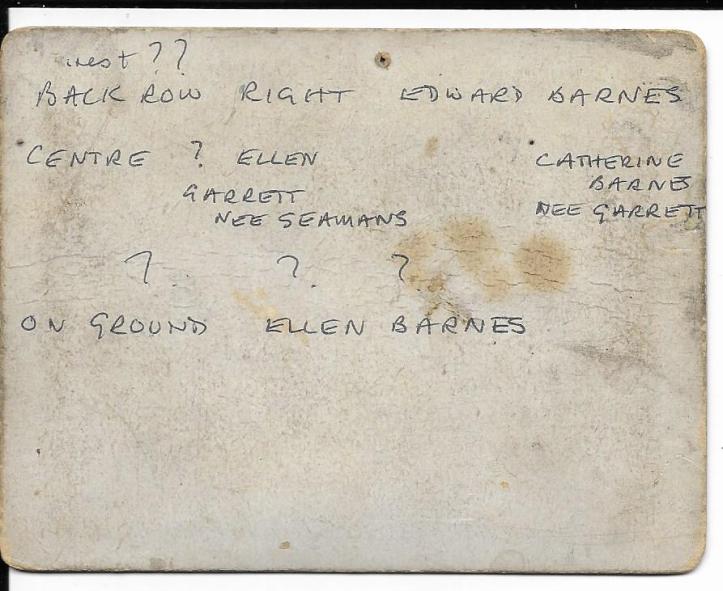 ??
BACK ROW RIGHT EDWARD BARNES
CENTRE ? ELLEN CATHERINE
BARNES
GARRETT
NEE SEAMANS NEE GARRETT
? ? ?
ON GROUND ELLEN BARNES